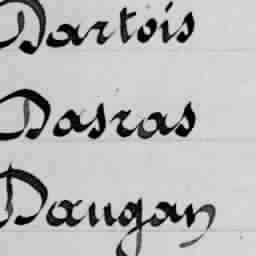 Dartois
Dasras
Daugan